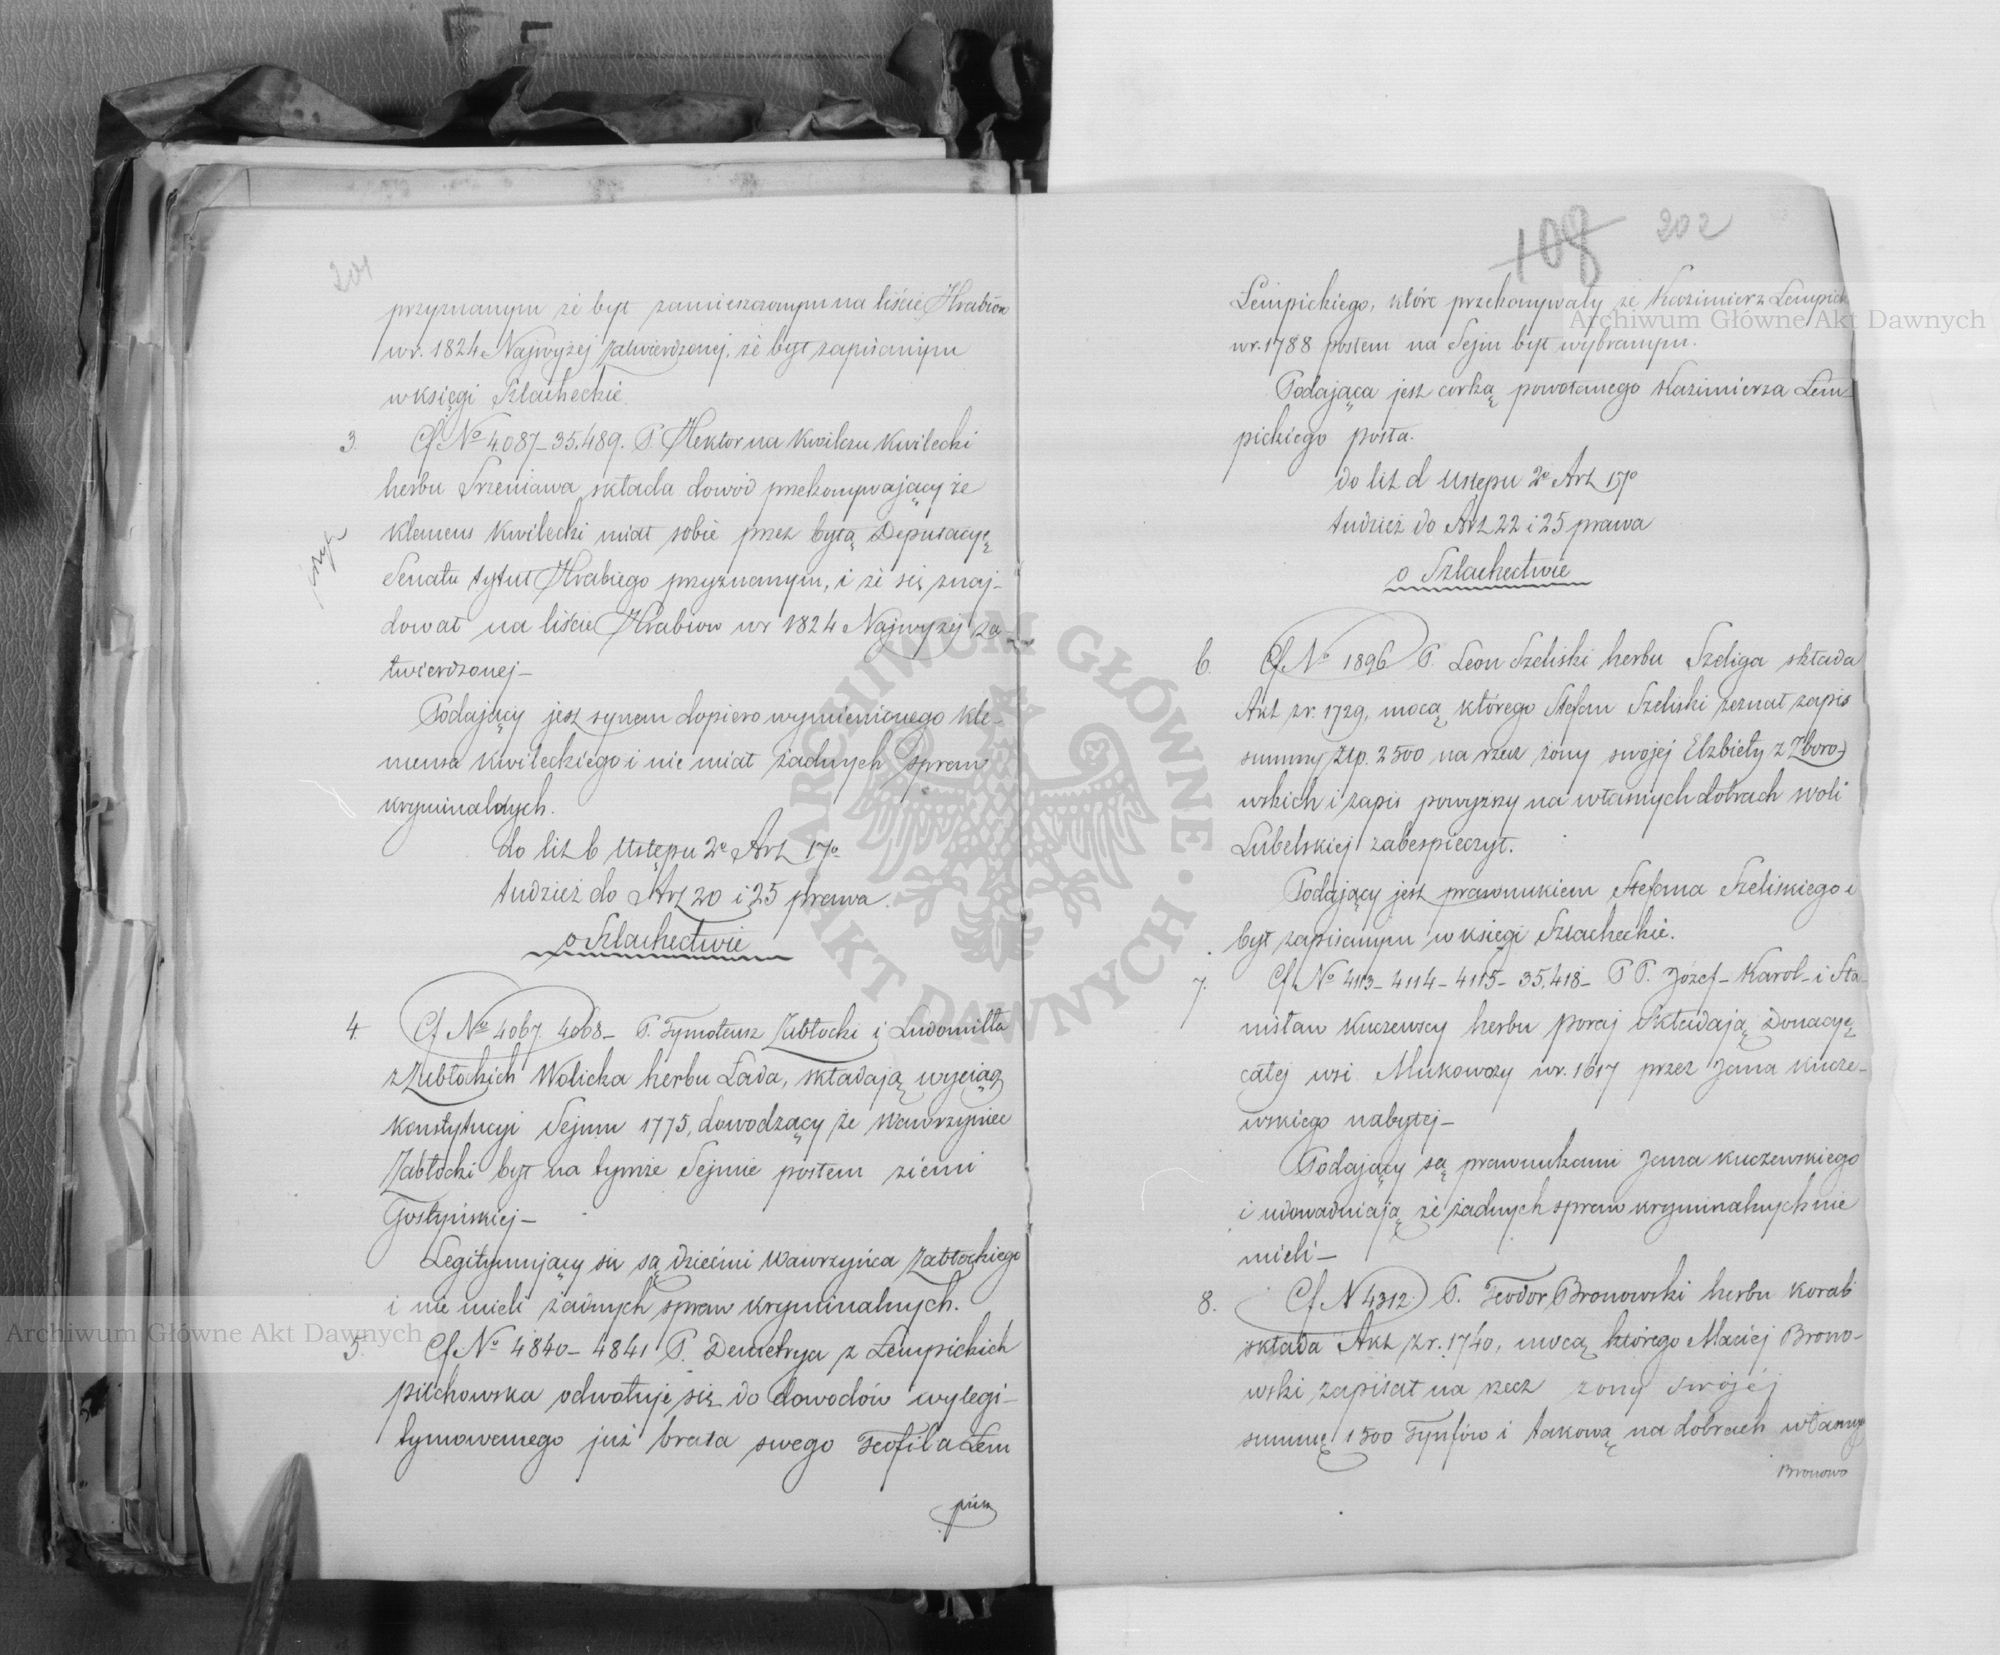 201
przyznanym że był zamieszczonym na liście Hrabiów
w r. 1824 Najwyżej zatwierdzonej, że był zapisanym
w księgi Szlacheckie.
3. Cf No 4.087–35.489. P. Hektor na Kwilczu Kwilecki
herbu Szreniawa składa dowód przekonywający że
Klemens Kwilecki miał sobie przez byłą Deputacyę
Senatu tytuł Hrabiego przyznanym, i że się znaj-
dował na liście Hrabiow w r 1824 Najwyżej za-
twierdzonej–
Podający jest synem dopiero wymienionego Kle-
mensa Kwileckiego i nie miał żadnych spraw
kryminalnych.
do lit b Ustępu 2o Art 17o
tudzież do Art 20 i 25 prawa.
o Szlachectwie
4. Cf No 4067. 4068– P. Tymoteusz Zabłocki i Ludomiłła
z Zabłockich Wolicka herbu Łada, składają wyciąg
Konstytucyi Sejmu 1775, dowodzący że Wawrzyniec
Zabłocki był na tymże Sejmie posłem ziemi
Gostyńskiej–
Legitymujący się są dziećmi Wawrzyńca Zabłockiego
i nie mieli żadnych spraw kryminalnych.
5. Cf No 4840–4841 P. Demetrya z Łempickich
Pilchowska odwołuje się do dowodów wylegi-
tymowanego już brata swego Teofila Łem
108 202
Łempickiego, które przekonywały że Kazimierz Łempick
w r. 1788 posłem na Sejm był wybranym.
Podająca jest corką powołanego Kazimierza Łem-
pickiego posła.
do lit d Ustępu 2o Art 17o
tudzież do Art 22 i 25 prawa
o Szlachectwie
6. Cf No 1896 P. Leon Szeliski herbu Szeliga składa
Akt z r. 1729, mocą którego Stefan Szeliski zeznał zapis
summy Złp. 2500 na rzecz żony swojej Elzbiety z Zboro-
wskich i zapis powyższy na własnych dobrach Woli
Lubelskiej zabespieczył.
Podający jest prawnukiem Stefana Szeliskiego i
był zapisanym w księgi Szlacheckie.
7. Cf No 4113–4114–4115–35.418– P P. Józef–Karol–i Sta-
nisław Kuczewscy herbu Poraj Składają Donacyę
całej wsi Mukowczy w r. 1617 przez Jana Kucze-
wskiego nabytej–
Podający są prawnukami Jana Kuczewskiego
i udowadniają że żadnych spraw kryminalnych nie
mieli–
8. Cf N 4312 P. Teodor Bronowski herbu Korab
składa Akt z r. 1740, mocą którego Maciej Brono-
wski zapisał na rzecz żony swojej
summę 1500 Tynfów i takową na dobrach własny
Bronowo
ARCHIWUM GŁÓWNE AKT DAWNYCH
Archiwum Główne Akt Dawnych
Archiwum Główne Akt Dawnych